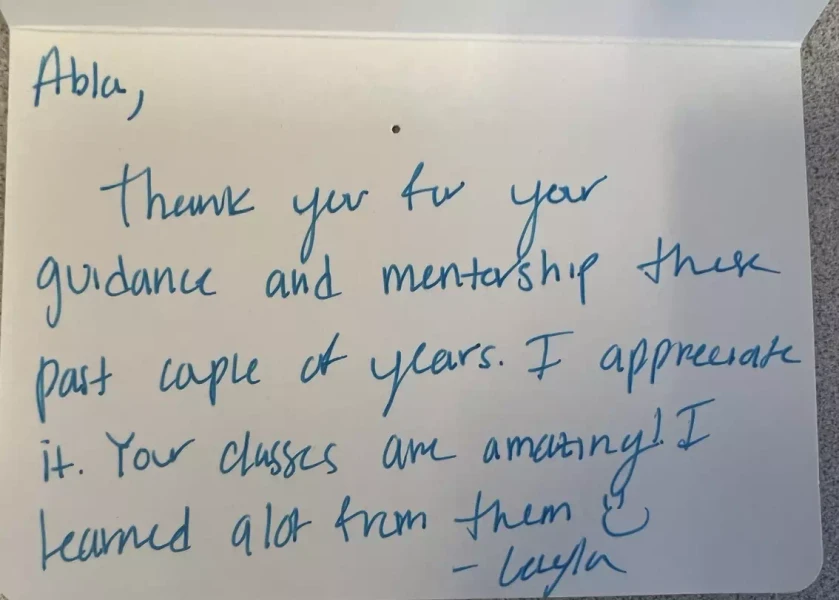 Abla,
Thank you for your
guidance and mentorship these
past cople of years. I appreciate
it. Your classes are amazing! I
learned alot from them :)
- Layla